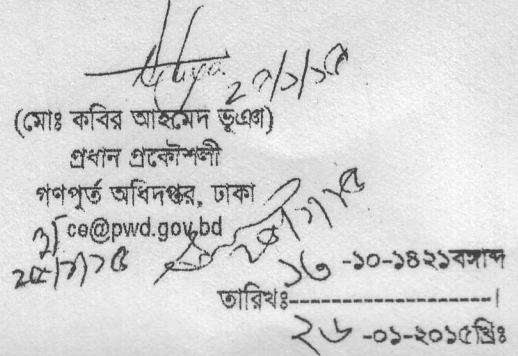 ২৭/১/১৫
(মোঃ কবির আহমেদ ভূঞা)
প্রধান প্রকৌশলী
গণপূর্ত অধিদপ্তর, ঢাকা
ce@pwd.gov.bd
১৩ -১০-১৪২১বঙ্গাব্দ
তারিখঃ--------------------।
২৬ -০১-২০১৫খ্রিঃ